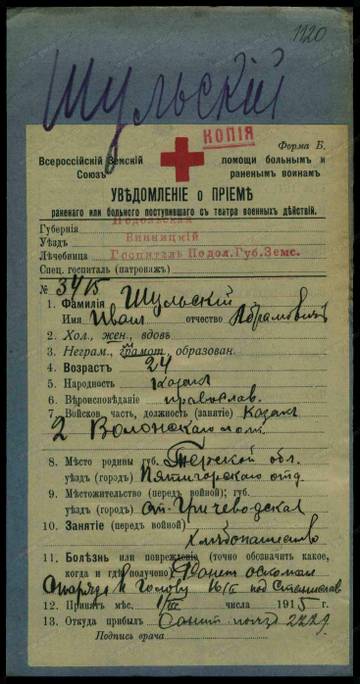 1120
Шульскій
КОПІЯ
Форма Б.
Всероссійскій Земскій Союзъ
помощи больнымъ и раненымъ воинамъ
УВѢДОМЛЕНІЕ о ПРІЕМѢ
раненаго или больного поступившаго съ театра военныхъ дѣйствій.
Губернія Подольская
Уѣздъ Винницкій
Лѣчебница Госпиталь Подол.Губ.Земс.
Спец. госпиталь (патронаж)
№ 3415
1. Фамилія Шульскій
Имя Иванъ отчество Абрамовичъ
2. Хол., жен., вдовъ
3. Неграм., грамот. образован.
4. Возрастъ 24
5. Народность казакъ
6. Вѣроисповѣданіе православ.
7. Войсков. часть, должность (занятіе) Казакъ
2
8. Мѣсто родины губ. Терской обл.
уѣздъ (городъ) Пятигорскаго отд.
9. Мѣстожительство (передъ войной); губ.
уѣздъ (городъ) ст.
10. Занятіе (передъ войной)
Хлѣбопашество
11. Болѣзнь или поврежденіе (точно обозначить какое,
когда и гдѣ получено) Ранен осколком
снаряда въ голову под Станислав
12. Принятъ мѣс. числа 1915 г.
13. Откуда прибылъ Санит. поѣзд 2229
Подпись врача